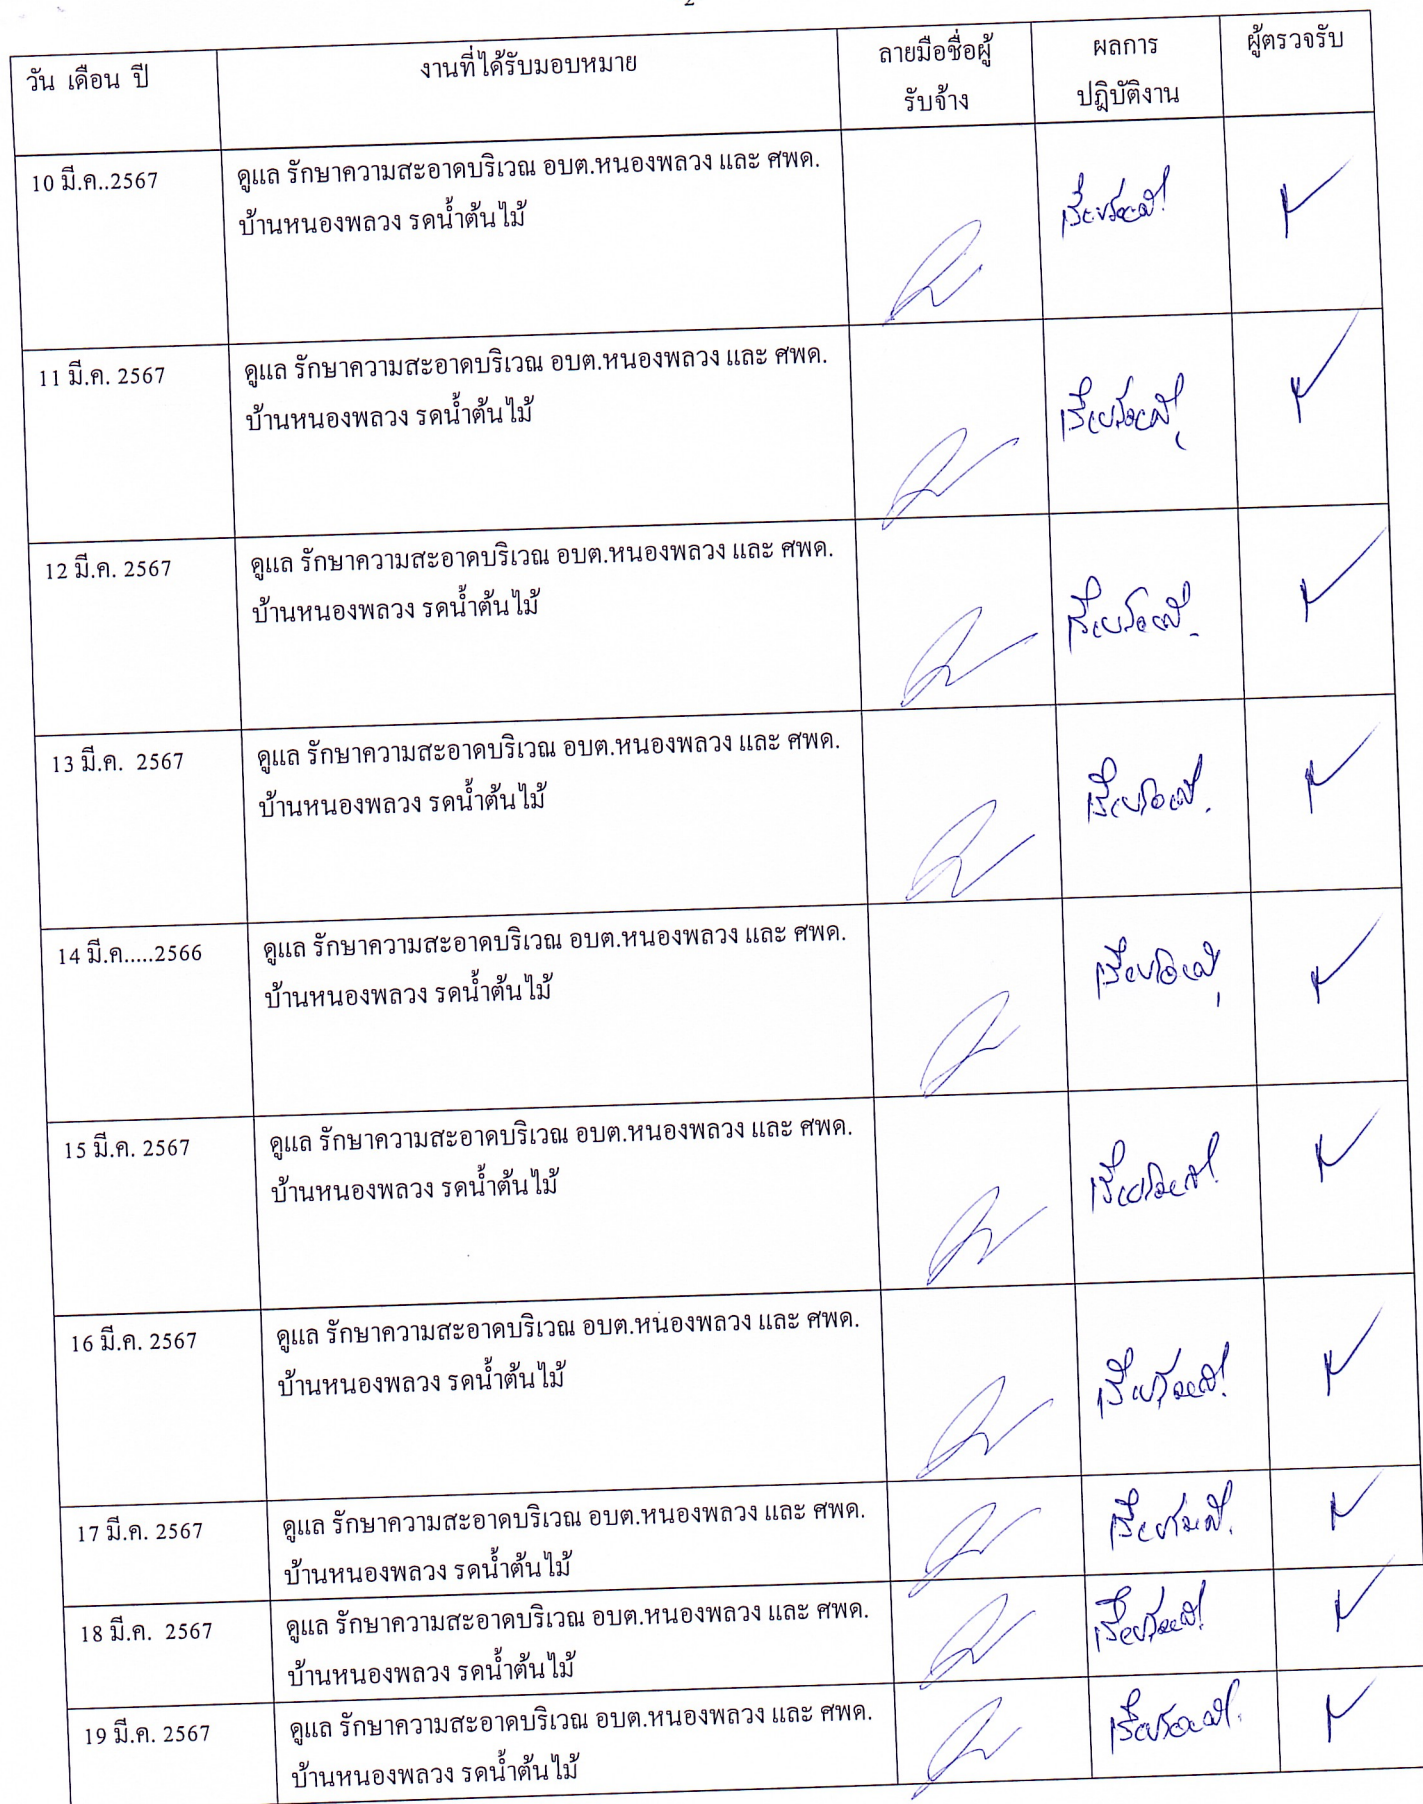 2
วัน เดือน ปี
งานที่ได้รับมอบหมาย
ลายมือชื่อผู้
รับจ้าง
ผลการ
ปฏิบัติงาน
ผู้ตรวจรับ
10 มี.ค..2567
ดูแล รักษาความสะอาดบริเวณ อบต.หนองพลวง และ ศพด.
บ้านหนองพลวง รดน้ำต้นไม้
เรียบร้อยดี
11 มี.ค. 2567
ดูแล รักษาความสะอาดบริเวณ อบต.หนองพลวง และ ศพด.
บ้านหนองพลวง รดน้ำต้นไม้
เรียบร้อยดี
12 มี.ค. 2567
ดูแล รักษาความสะอาดบริเวณ อบต.หนองพลวง และ ศพด.
บ้านหนองพลวง รดน้ำต้นไม้
เรียบร้อยดี
13 มี.ค. 2567
ดูแล รักษาความสะอาดบริเวณ อบต.หนองพลวง และ ศพด.
บ้านหนองพลวง รดน้ำต้นไม้
เรียบร้อยดี
14 มี.ค.....2566
ดูแล รักษาความสะอาดบริเวณ อบต.หนองพลวง และ ศพด.
บ้านหนองพลวง รดน้ำต้นไม้
เรียบร้อยดี
15 มี.ค. 2567
ดูแล รักษาความสะอาดบริเวณ อบต.หนองพลวง และ ศพด.
บ้านหนองพลวง รดน้ำต้นไม้
เรียบร้อยดี
16 มี.ค. 2567
ดูแล รักษาความสะอาดบริเวณ อบต.หนองพลวง และ ศพด.
บ้านหนองพลวง รดน้ำต้นไม้
เรียบร้อยดี
17 มี.ค. 2567
ดูแล รักษาความสะอาดบริเวณ อบต.หนองพลวง และ ศพด.
บ้านหนองพลวง รดน้ำต้นไม้
เรียบร้อยดี
18 มี.ค. 2567
ดูแล รักษาความสะอาดบริเวณ อบต.หนองพลวง และ ศพด.
บ้านหนองพลวง รดน้ำต้นไม้
เรียบร้อยดี
19 มี.ค. 2567
ดูแล รักษาความสะอาดบริเวณ อบต.หนองพลวง และ ศพด.
บ้านหนองพลวง รดน้ำต้นไม้
เรียบร้อยดี